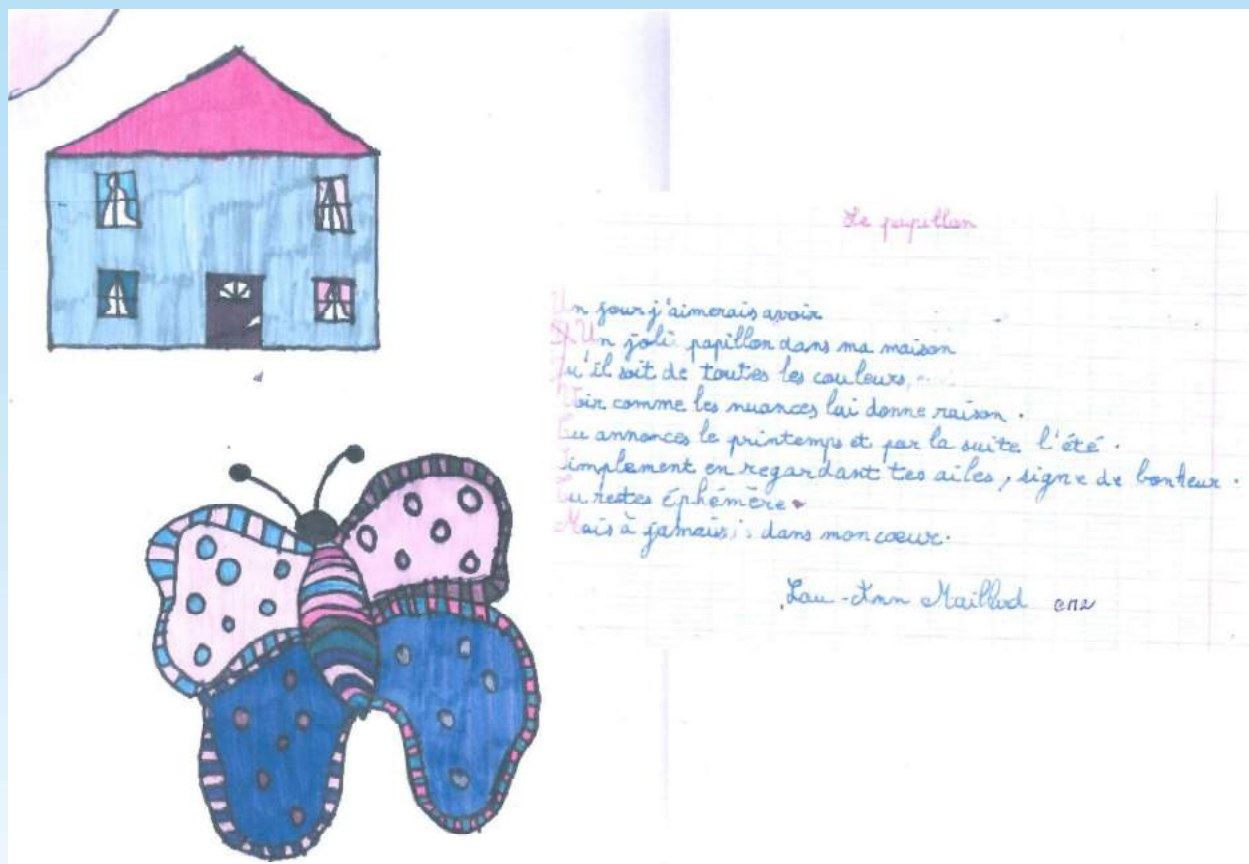 Le papillon
Un jour j'aimerais avoir
Un joli papillon dans ma maison
Qu'il soit de toutes les couleurs,
Voir comme les nuances lui donne raison.
Tu annonces le printemps et par la suite l'été.
Simplement en regardant tes ailes, signe de bonheur.
Tu restes éphémère.
Mais à jamais, dans mon cœur.
Lou-Ann Maillard CM2